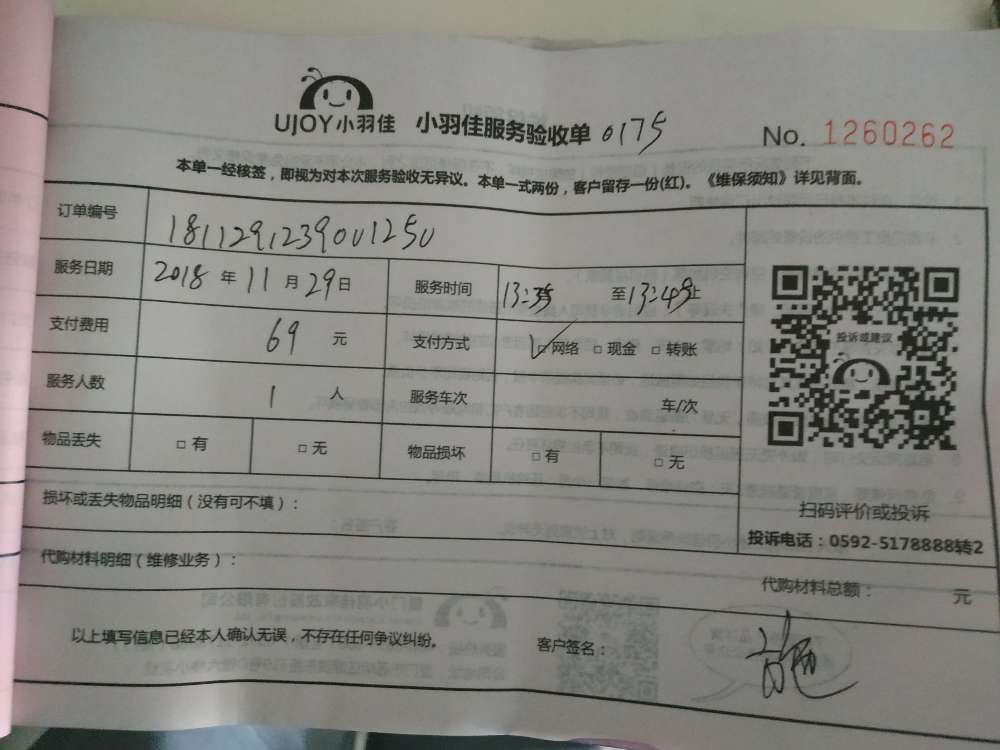 UJOY小羽佳 小羽佳服务验收单 0175 No. 1260262
本单一经核签，即视为对本次服务验收无异议。本单一式两份，客户留存一份(红)。《维保须知》详见背面。
订单编号 18112912390U125U
服务日期 2018 年 11 月 29 日 服务时间 13:35 至 13:45 止
支付费用 69 元 支付方式 □ 网络 □ 现金 □ 转账
投诉或建议
服务人数 1 人 服务车次 车/次
物品丢失 □ 有 □ 无 物品损坏 □ 有 □ 无
扫码评价或投诉
投诉电话：0592-5178888转2
损坏或丢失物品明细（没有可不填）：
代购材料明细（维修业务）：
代购材料总额： 元
以上填写信息已经本人确认无误，不存在任何争议纠纷。 客户签名：